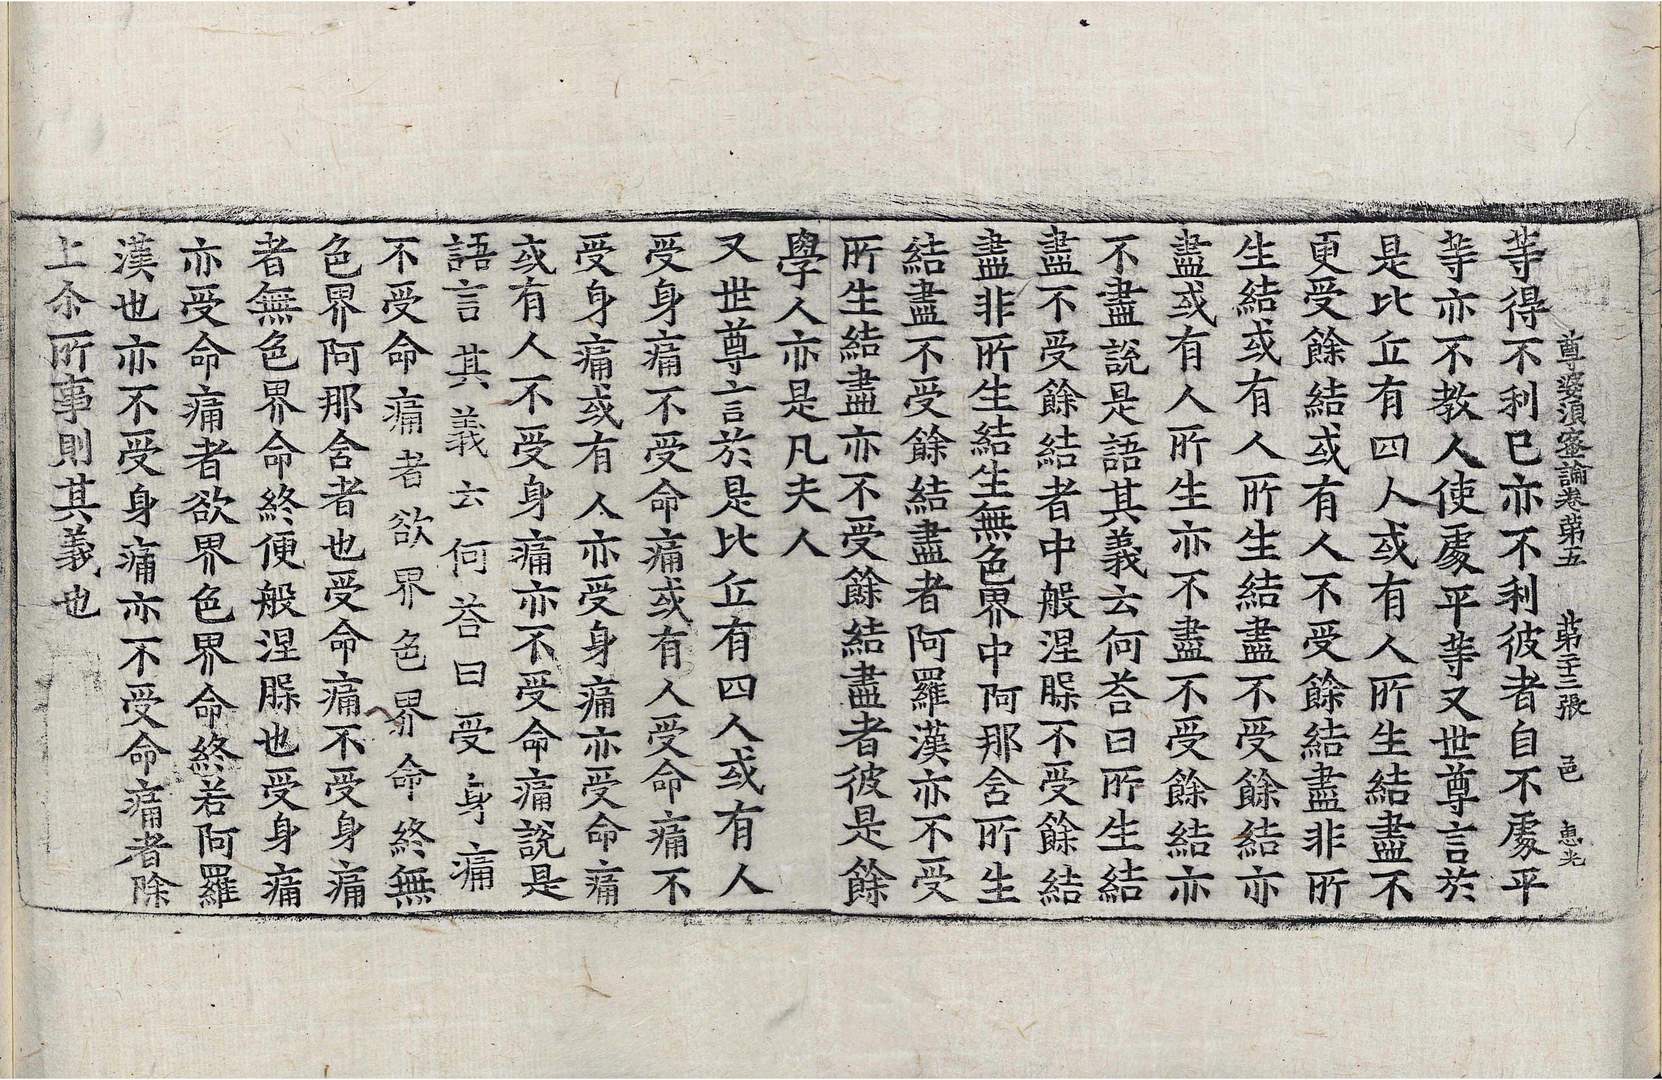 尊婆須蜜論卷苐五 苐二十三張 邑 惠光
等得不利已亦不利彼者自不處平
等亦不教人使處平等又世尊言於
是比丘有四人或有人所生結盡不
更受餘結或有人不受餘結盡非所
生結或有人所生結盡不受餘結亦
盡或有人所生亦不盡不受餘結亦
不盡說是語其義云何荅曰所生結
盡不受餘結者中般涅槃不受餘結
盡非所生結生無色界中阿那含所生
結盡不受餘結盡者阿羅漢亦不受
所生結盡亦不受餘結盡者彼是餘
學人亦是凡夫人
又世尊言於是比丘有四人或有人
受身痛不受命痛或有人受命痛不
受身痛或有人亦受身痛亦受命痛
或有人不受身痛亦不受命痛說是
語言其義云何荅曰受身痛
不受命痛者欲界色界命終無
色界阿那含者也受命痛不受身痛
者無色界命終便般涅槃也受身痛
亦受命痛者欲界色界命終若阿羅
漢也亦不受身痛亦不受命痛者除
上尒所事則其義也